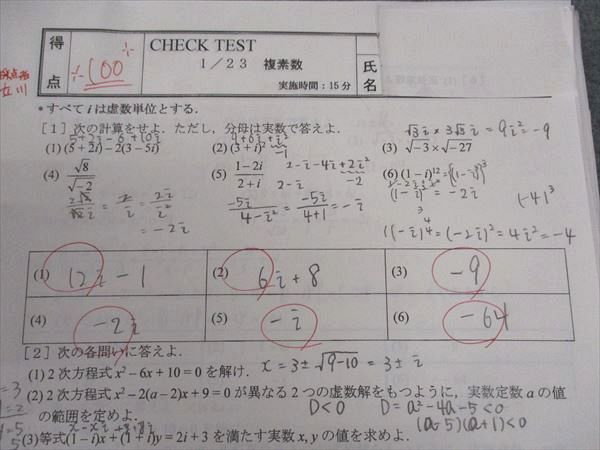 得点
100
CHECK TEST
1/23 複素数
実施時間:15分
氏名
採点者
立川
*すべて i は虚数単位とする.
[1]次の計算をせよ. ただし, 分母は実数で答えよ.
5+2i-6+10i
(1) (5+2i)-2(3-5i)
9+6i+i²
-1
(2) (3+i)²
√3i×3√3i=9i²=-9
(3) √-3×√-27
(4) √8/√-2
(5) (1-2i)/(2+i)
2-i-4i+2i²
-2
2-i
(6) (1-i)¹²={(1-i)⁴}³
(1-i)²=-2i
(-4)³
=2/i=2i/i²
=-2i
-5i/(4-i²)=-5i/(4+1)=-i
(1-i)⁴=(-2i)²=4i²=-4
(1) 12i-1
(2) 6i+8
(3) -9
(4) -2i
(5) -i
(6) -64
[2]次の各問いに答えよ.
(1) 2次方程式 x²-6x+10=0 を解け. x=3±√9-10=3±i
(2) 2次方程式 x²-2(a-2)x+9=0 が異なる2つの虚数解をもつように, 実数定数 a の値
の範囲を定めよ. D<0 D=a²-4a-5<0
(a-5)(a+1)<0
(3)等式(1-i)x+(1+i)y=2i+3 を満たす実数 x, y の値を求めよ.